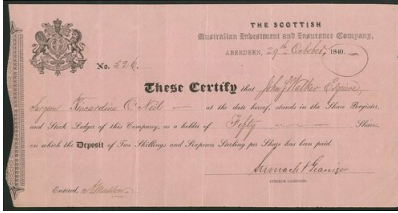 THE SCOTTISH
Australian Investment and Insurance Company,
ABERDEEN, 29th October, 1840.
No. 526.
These Certify that John J. Walker Esquire,
Kincardine O'Neil at the date hereof, stands in the Share Register
and Stock Ledger of this Company, as a holder of Fifty Shares
on which the Deposit of Two Shillings and Sixpence Sterling per Share has been paid
Entered,